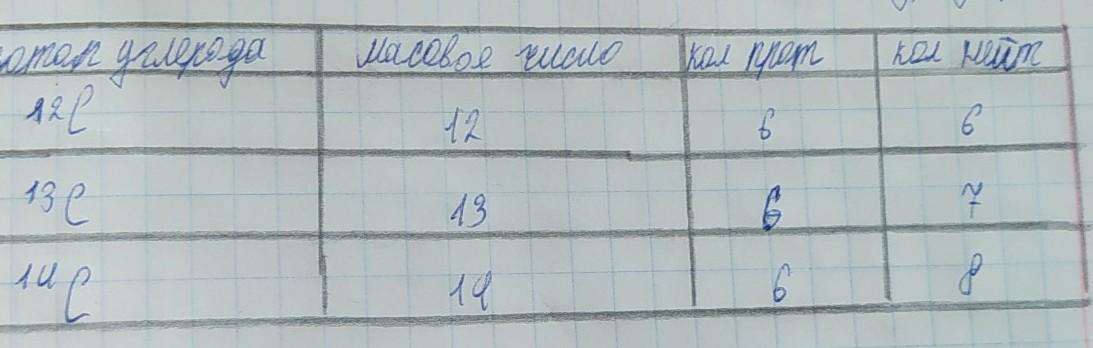 углерода масовое число кол прот кол нейт
12C 12 6 6
13C 13 6 7
14C 14 6 8